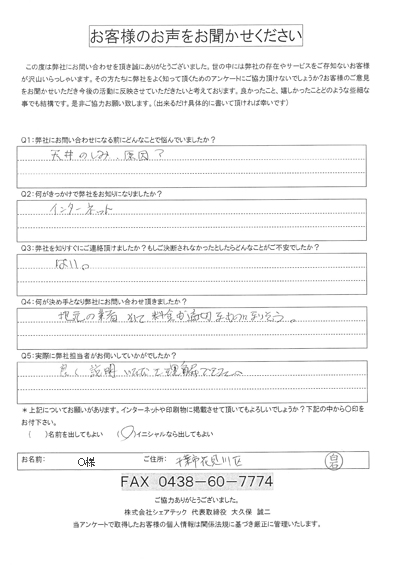 お客様のお声をお聞かせください
この度は弊社にお問い合わせを頂き誠にありがとうございました。世の中には弊社の存在やサービスをご存知ないお客様
が沢山いらっしゃいます。その方たちに弊社をよく知って頂くためのアンケートにご協力頂けないでしょうか?お客様のご意見
をお聞かせいただき今後の活動に反映させていただきたいと考えております。良かったこと、嬉しかったことどのような些細な
事でも結構です。是非ご協力お願い致します。(出来るだけ具体的に書いて頂ければ幸いです)
Q1:弊社にお問い合わせになる前にどんなことで悩んでいましたか?
天井のしみ、原因?
Q2:何がきっかけで弊社をお知りになりましたか?
インターネット
Q3:弊社を知りすぐにご連絡頂けましたか?もしご決断されなかったとしたらどんなことがご不安でしたか?
はい。
Q4:何が決め手となり弊社にお問い合わせ頂きましたか?
地元の業者 料金も適切なものでありそう。
Q5:実際に弊社担当者がお伺いしていかがでしたか?
良く 説明 いただいて理解できた。
*上記についてお願いがあります。インターネットや印刷物に掲載させて頂いてもよろしいでしょうか?下記の中から〇印を
お付下さい。
( )名前を出してもよい (〇)イニシャルなら出してもよい
お名前: O様 ご住所: 千葉市花見川区
FAX 0438-60-7774
ご協力ありがとうございました。
株式会社シェアテック 代表取締役 大久保 誠二
当アンケートで取得したお客様の個人情報は関係法規に基づき厳正に管理いたします。